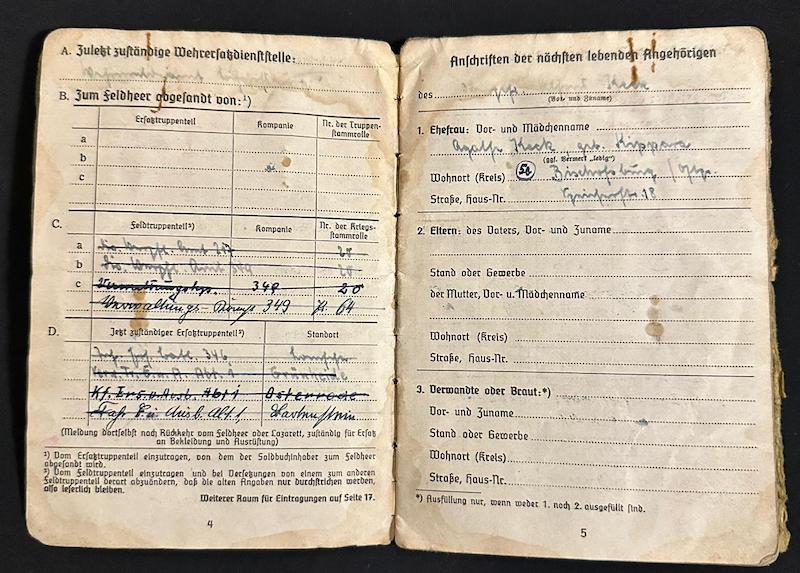 A. Zuletzt zuständige Wehrersatzdienststelle:
B. Zum Feldheer abgesandt von:¹)
Ersatztruppenteil Kompanie Nr. der Truppen-
stammrolle
a
b
c
C. Feldtruppenteil²) Kompanie Nr. der Kriegs-
stammrolle
a
b
c Verwaltungskp. 349 20
Verwaltungs-Komp. 349 64
D. Jetzt zuständiger Ersatztruppenteil²) Standort
346
Abt. 1
Kf. Ers. u. Ausb. Abt 1 Osterode
Ausb. Abt. 1
(Meldung dortselbst nach Rückkehr vom Feldheer oder Lazarett, zuständig für Ersatz
an Bekleidung und Ausrüstung)
¹) Vom Ersatztruppenteil einzutragen, von dem der Soldbuchinhaber zum Feldheer
abgesandt wird.
²) Vom Feldtruppenteil einzutragen und bei Versetzungen von einem zum anderen
Feldtruppenteil derart abzuändern, daß die alten Angaben nur durchstrichen werden,
also leserlich bleiben.
Weiterer Raum für Eintragungen auf Seite 17.
4
Anschriften der nächsten lebenden Angehörigen
des Keck
(Vor- und Zuname)
1. Ehefrau: Vor- und Mädchenname
Keck, geb.
(ggf. Vermerk „ledig")
Wohnort (Kreis) Bischofsburg
Straße, Haus-Nr. 18
2. Eltern: des Vaters, Vor- und Zuname
Stand oder Gewerbe
der Mutter, Vor- u. Mädchenname
Wohnort (Kreis)
Straße, Haus-Nr.
3. Verwandte oder Braut:*)
Vor- und Zuname
Stand oder Gewerbe
Wohnort (Kreis)
Straße, Haus-Nr.
*) Ausfüllung nur, wenn weder 1. noch 2. ausgefüllt sind.
5